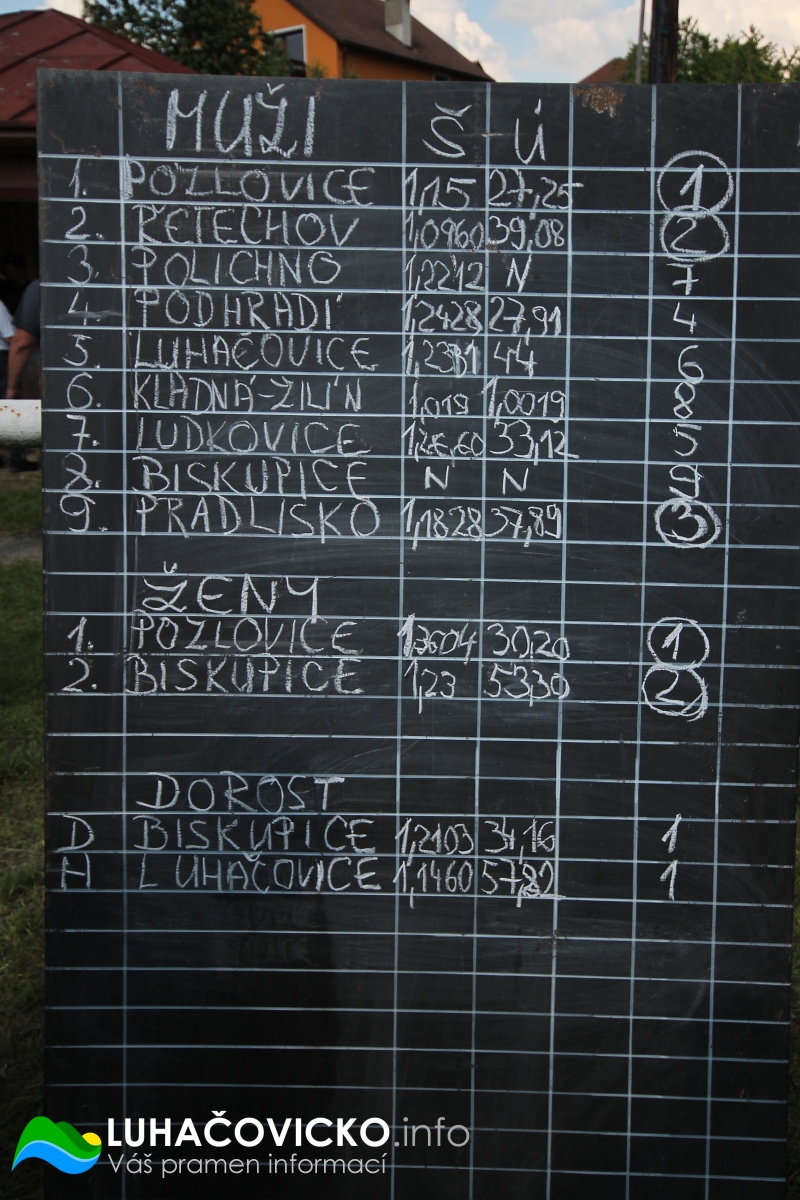 MUŽI Š Ú
1. POZLOVICE 1,15 27,25 1
2. ŘETECHOV 1,0960 39,08 2
3. POLICHNO 1,2212 N 7
4. PODHRADÍ 1,2428 27,91 4
5. LUHAČOVICE 44 6
6. KLADNÁ-ŽILÍN 1,019 1,0019 8
7. LUDKOVICE 1,2660 33,12 5
8. BISKUPICE N N 9
9. PRADLISKO 1,1828 37,89 3
ŽENY
1. POZLOVICE 1,3604 30,20 1
2. BISKUPICE 1,23 53,30 2
DOROST
D BISKUPICE 1,2103 34,16 1
H LUHAČOVICE 1,1460 57,82 1
LUHAČOVICKO.info
Váš pramen informací